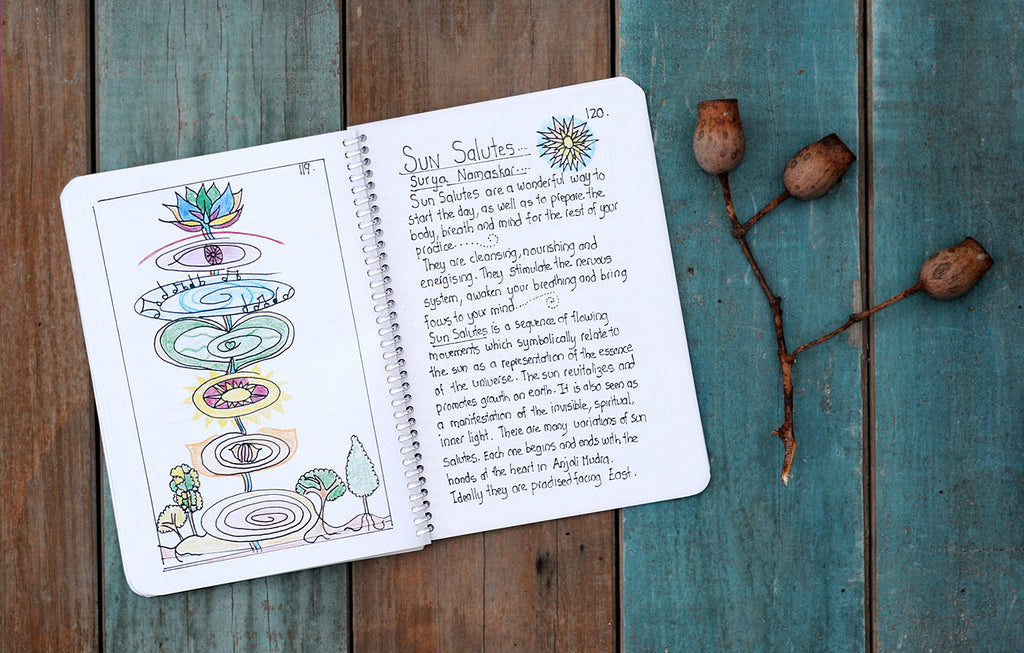 119.
120.
Sun Salutes...
Surya Namaskar....
Sun Salutes are a wonderful way to
start the day, as well as to prepare the
body, breath and mind for the rest of your
practice......
They are cleansing, nourishing and
energising. They stimulate the nervous
system, awaken your breathing and bring
focus to your mind......
Sun Salutes is a sequence of flowing
movements which symbolically relate to
the sun as a representation of the essence
of the universe. The sun revitalizes and
promotes growth on earth. It is also seen as
a manifestation of the invisible, spiritual,
inner light. There are many variations of sun
salutes. Each one begins and ends with the
hands at the heart in Anjali Mudra.
Ideally they are practised facing East.